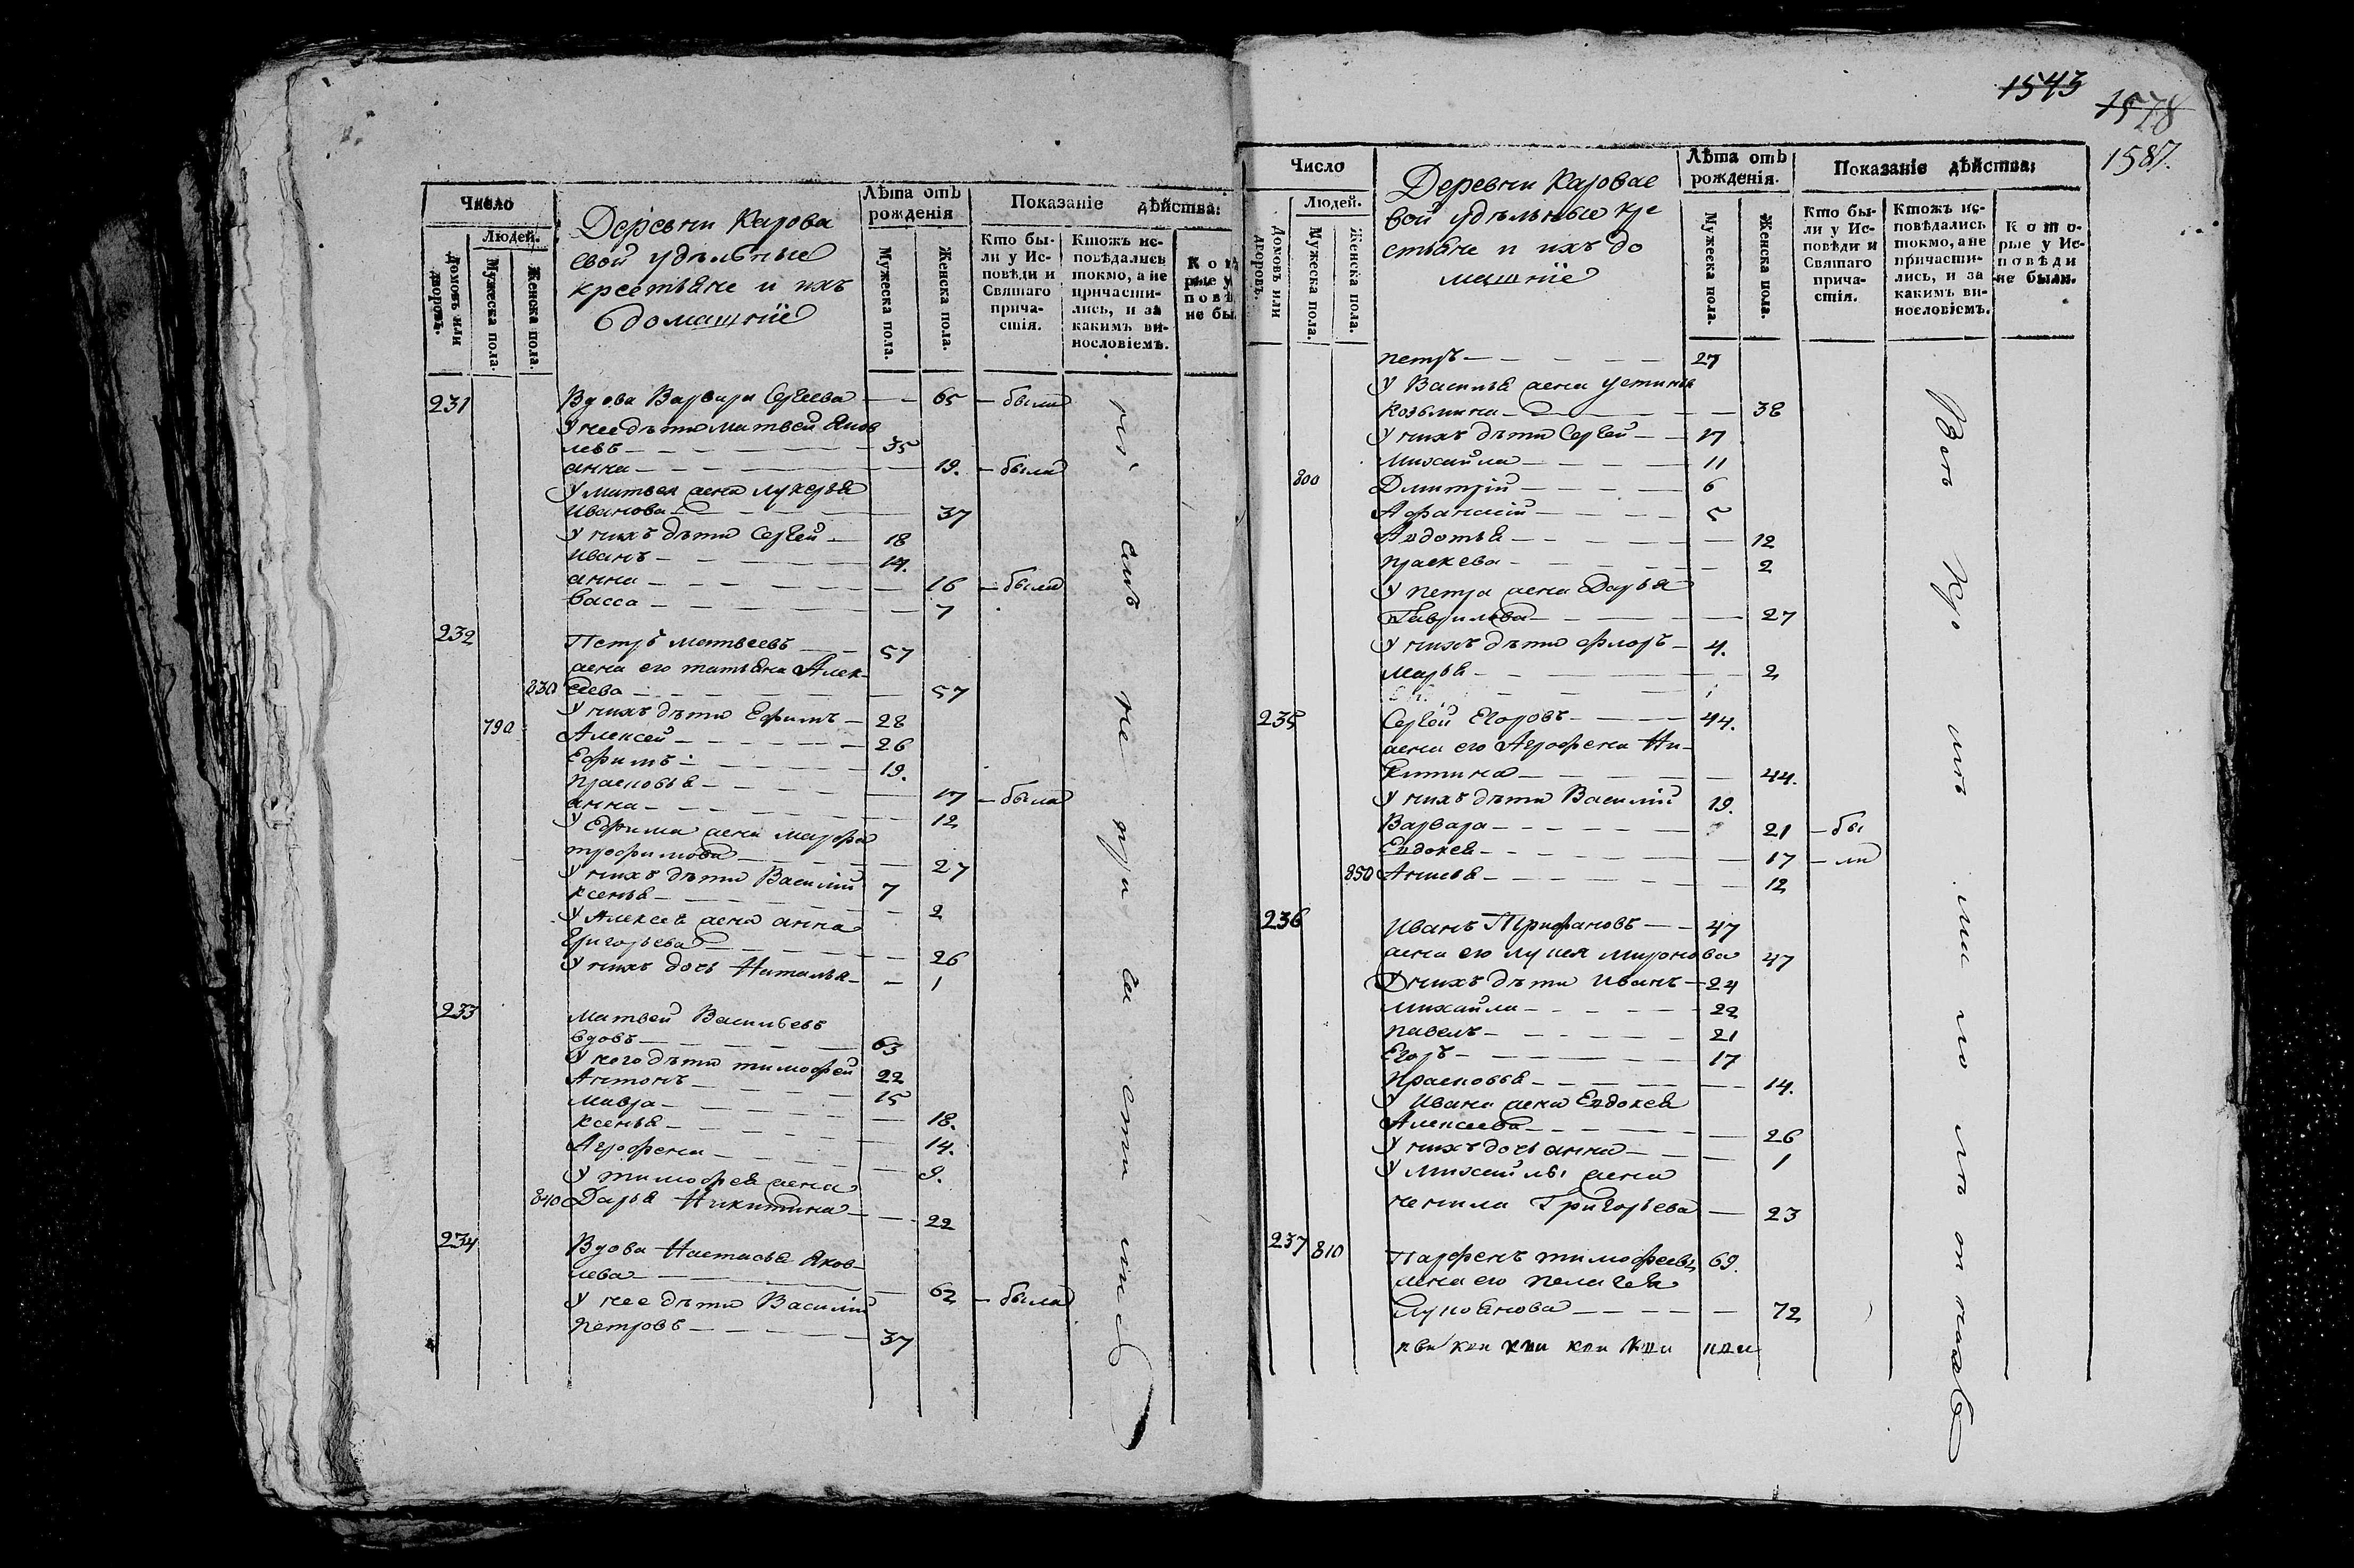 Число
Людей.
Домовъ или дворовъ.
Мужеска пола.
Женска пола.
Деревни Карова
евой удѣльные
крестьяне и ихъ
домашніе
Лѣта отъ
рожденія
Мужеска пола.
Женска пола.
Показаніе дѣйства:
Кто бы-
ли у Ис-
повѣди и
Святаго
прича-
стія.
Ктожъ ис-
повѣдались
токмо, а не
причасти-
лись, и за
какимъ ви-
нословіемъ.
Кот
рые у
повѣ
не бы
231 Вдова Варвара Сергеева — — 65 — была
У нее дѣти Матвей Яков
левъ — 35
анна — 19. — была
У Матвея жена лукерья
Иванова — 37
У нихъ дѣти Сергей — 18
Иванъ — 14.
анна — 16 — была
Васса — 7
232 Петръ Матвеевъ — 57
жена его татьяна Алек-
830 сеева — 57
У нихъ дѣти Ефимъ — 28
790 Алексей — 26
Ефимъ — 19.
Прасковья — 17 — была
анна — 12
У Ефима жена марфа
трофимова — 27
У нихъ дѣти Василій 7
ксенья — 2
У Алексея жена анна
Григорьева — 26
У нихъ дочь Наталья — 1
233 Матвей Васильевъ
вдовъ — 63
У него дѣти тимофей 22
Антонъ — 15
мавра — 18.
ксенья — 14.
Агрофена — 9.
У тимофея жена
840 Дарья Никитина — 22
234 Вдова Настасья Яков-
лева — 62 — была
У нее дѣти Василій
Петровъ — 37
1543
1578
1587.
Число
Людей.
Домовъ или дворовъ.
Мужеска пола.
Женска пола.
Деревни Каровае
вой удѣльные кре
стьяне и ихъ до
машніе
Лѣта отъ
рожденія.
Мужеска пола.
Женска пола.
Показаніе дѣйства:
Кто бы-
ли у Ис-
повѣди и
Святаго
прича-
стія.
Ктожъ ис-
повѣдались
токмо, а не
причасти-
лись, и за
какимъ ви-
нословіемъ.
Кото-
рые у Ис-
повѣди
не были.
петръ — 27
У Василья жена устинья
Козьмина — 38
У нихъ дѣти Сергей — 17
Михайла — 11
800 Дмитрій — 6
Афанасій — 5
Авдотья — 12
праскева — 2
У петра жена Дарья
Гаврилова — 27
У нихъ дѣти флоръ — 4.
марья — 2
235 Сергей Егоровъ — 44.
жена его Агрофена Ни-
китина — 44.
У нихъ дѣти Василій 19.
Варвара — 21 — бы
Евдокея — 17 — ли
850 Анисья — 12
236 Иванъ Трифановъ — 47
жена его лукея миронова 47
У нихъ дѣти Иванъ — 24
михайла — 22
павелъ — 21
Егоръ — 17
Прасковья — 14.
У Ивана жена Евдокея
Алексеева — 26
У нихъ дочь анна — 1
У михайлы жена
ненила Григорьева — 23
237 810 Парфенъ тимофеевъ 69.
жена его пелагея
Лукоянова — 72